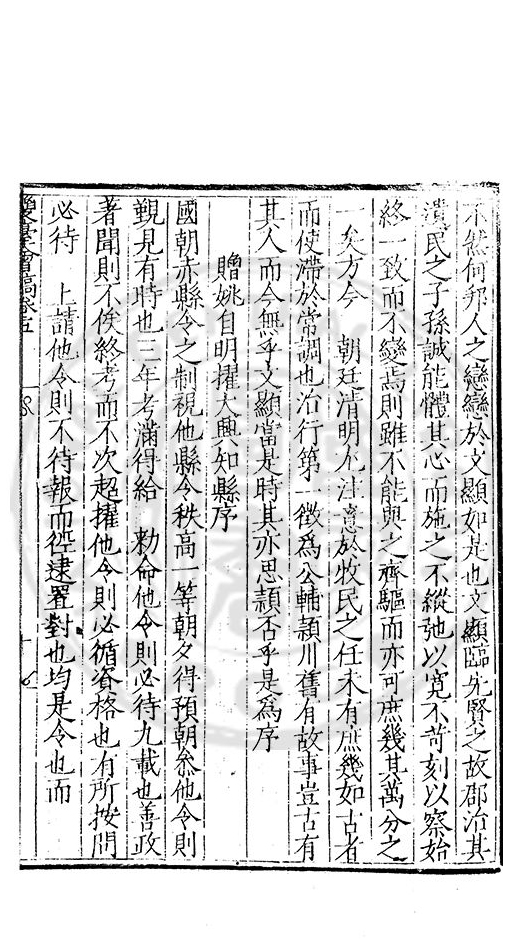 不然何邦人之戀戀於文顯如是也文顯臨先賢之故郡治其
遺民之子孫誠能體其心而施之不縱弛以寬不苛刻以察始
終一致而不變焉則雖不能與之齊驅而亦可庶幾其萬分之
一矣方今 朝廷清明尤注意於牧民之任未有庶幾如古者
而使滯於常調也治行第一徵為公輔潁川舊有故事豈古有
其人而今無乎文顯當是時其亦思潁否乎是為序
贈姚自明擢大興知縣序
國朝赤縣令之制視他縣令秩高一等朝夕得預朝叅他令則
覲見有時也三年考滿得給 勑命他令則必待九載也善政
著聞則不俟終考而不次超擢他令則必循資格也有所按問
必待 上請他令則不待報而徑逮置對也均是令也而
雙臺會稿卷五
十